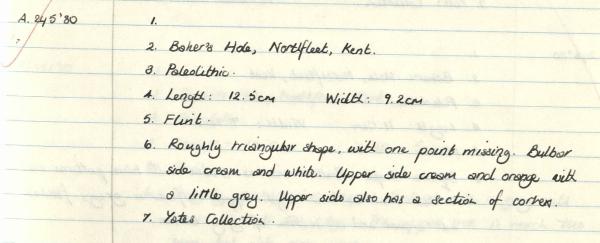 A. 245'80 1.
2. Baker's Hole, Northfleet, Kent.
3. Paleolithic.
4. Length: 12.5cm Width: 9.2cm
5. Flint.
6. Roughly triangular shape, with one point missing. Bulbar
side cream and white. Upper side cream and orange with
a little grey. Upper side also has a section of cortex.
7. Yates Collection.